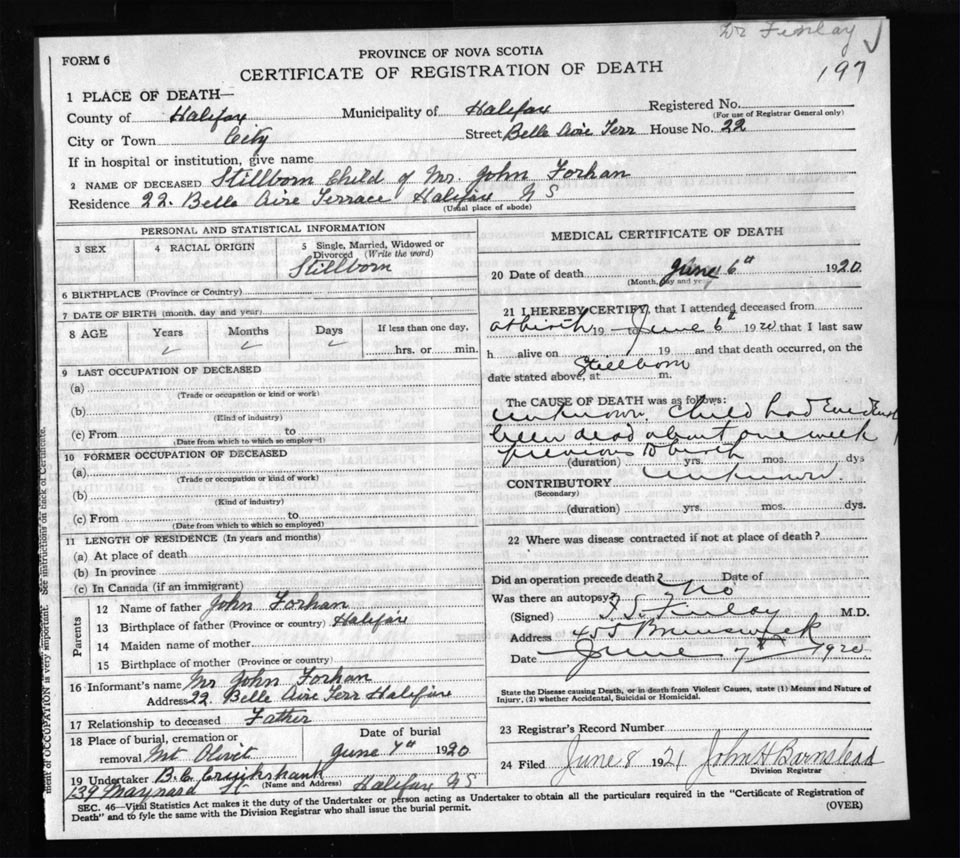 Dr Finlay
197
FORM 6
PROVINCE OF NOVA SCOTIA
CERTIFICATE OF REGISTRATION OF DEATH
1 PLACE OF DEATH—
County of Halifax Municipality of Halifax Registered No.
(For use of Registrar General only)
City or Town City Street Belle Aire Terr House No. 22
If in hospital or institution, give name
2 NAME OF DECEASED Stillborn Child of Mr. John Forhan
Residence 22. Belle Aire Terrace Halifax N S
(Usual place of abode)
PERSONAL AND STATISTICAL INFORMATION
3 SEX 4 RACIAL ORIGIN 5 Single, Married, Widowed or Divorced (Write the word)
Stillborn
6 BIRTHPLACE (Province or Country)
7 DATE OF BIRTH (month, day and year)
8 AGE Years Months Days If less than one day,
✓ ✓ ✓ hrs. or min.
9 LAST OCCUPATION OF DECEASED
(a)
(Trade or occupation or kind or work)
(b)
(Kind of industry)
(c) From to
(Date from which to which so employed)
10 FORMER OCCUPATION OF DECEASED
(a)
(Trade or occupation or kind of work)
(b)
(Kind of industry)
(c) From to
(Date from which to which so employed)
11 LENGTH OF RESIDENCE (In years and months)
(a) At place of death
(b) In province
(c) In Canada (if an immigrant)
Parents
12 Name of father John Forhan
13 Birthplace of father (Province or country) Halifax
14 Maiden name of mother
15 Birthplace of mother (Province or country)
16 Informant's name Mr John Forhan
Address 22. Belle Aire Terr Halifax
17 Relationship to deceased Father
18 Place of burial, cremation or removal Mt Olivet
Date of burial
June 7th 1920
19 Undertaker B.C. Cruikshank
(Name and Address)
139 Maynard St Halifax NS
MEDICAL CERTIFICATE OF DEATH
20 Date of death June 6th 1920
(Month, day and year)
21 I HEREBY CERTIFY, that I attended deceased from
at birth 19 to June 6th 1920 that I last saw
h alive on 19 and that death occurred, on the
date stated above, at Stillborn m.
The CAUSE OF DEATH was as follows:
Unknown. Child had Evidently
been dead about one week
previous to birth
(duration) yrs. mos. dys
CONTRIBUTORY Unknown.
(Secondary)
(duration) yrs. mos. dys.
22 Where was disease contracted if not at place of death?
Did an operation precede death? Date of
Was there an autopsy? No
(Signed) Finlay M.D.
Address 455 Brunswick
Date June 7th 1920
State the Disease causing Death, or in death from Violent Causes, state (1) Means and Nature of
Injury, (2) whether Accidental, Suicidal or Homicidal.
23 Registrar's Record Number
24 Filed June 8 1921 John H Barnstead
Division Registrar
SEC. 46—Vital Statistics Act makes it the duty of the Undertaker or person acting as Undertaker to obtain all the particulars required in the "Certificate of Registration of
Death" and to fyle the same with the Division Registrar who shall issue the burial permit.
(OVER)
ment of OCCUPATION is very important. See instructions on back of Certificate.